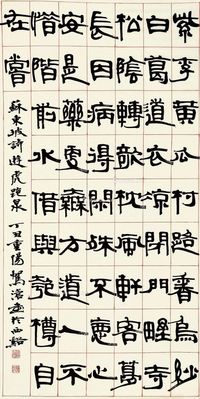 紫李黄瓜村路香烏紗
白葛道衣涼閉門野寺
松陰轉欹枕風軒客夢
長因病得閑殊不惡心
安是藥更無方道人不
惜階前水借與匏樽自
在嘗
蘇東坡詩遊虎跑泉 丁丑重陽